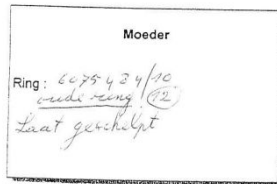 Moeder
Ring : 6075424/10
oude ring (12)
Laat geschelpt